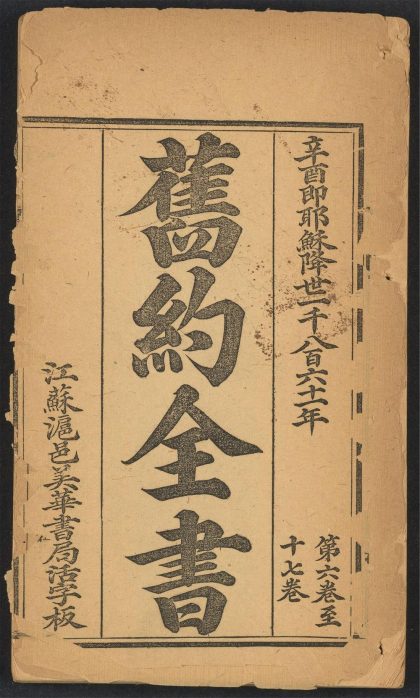 辛酉即耶穌降世一千八百六十一年
第六卷至
十七卷
舊約全書
江蘇滬邑美華書局活字板